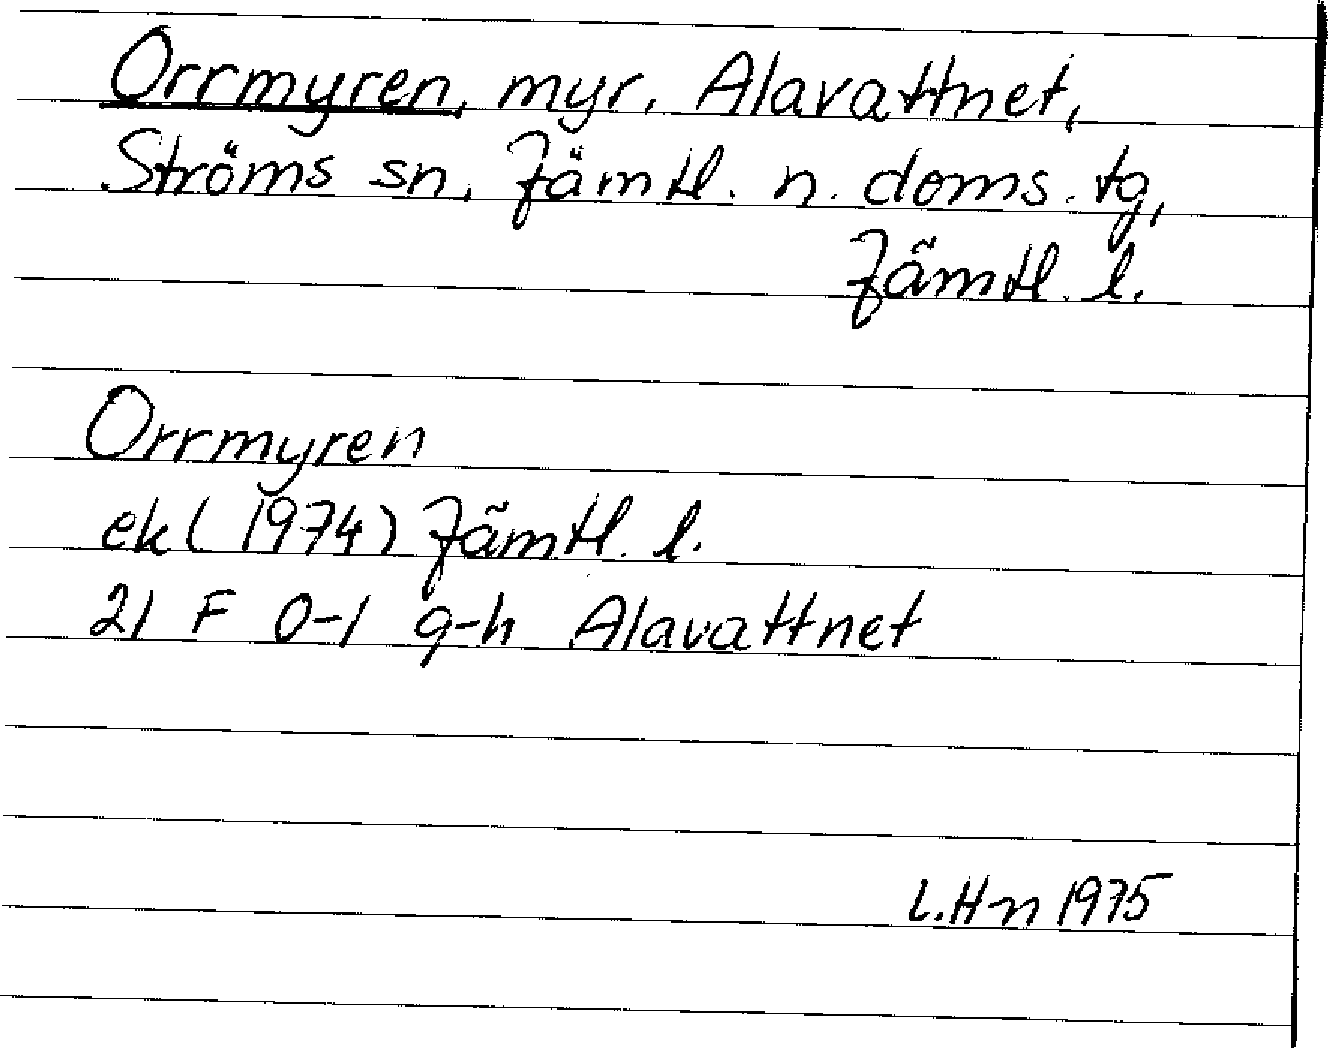 Orrmyren, myr, Alavattnet,
Ströms sn, Jämtl. n. doms. tg,
Jämtl. l.
Orrmyren
ek (1974) Jämtl. l.
21 F 0-1 g-h Alavattnet
L.H-n 1975